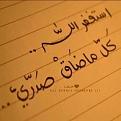 استغفر الله..
كلّ ما ضاق صدري..